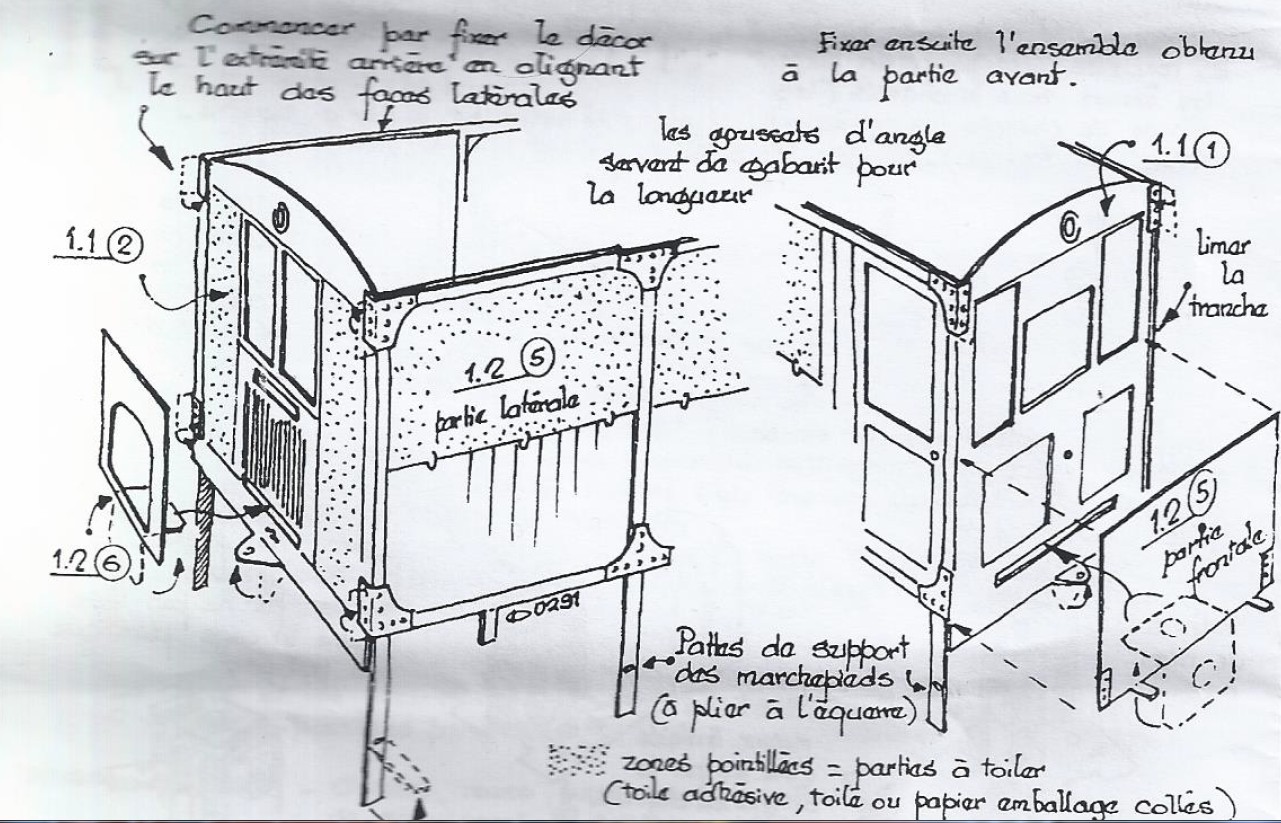 Commencer par fixer le décor
sur l'extrémité arrière en alignant
le haut des faces latérales
Fixer ensuite l'ensemble obtenu
à la partie avant.
les goussets d'angle
servent de gabarit pour
la longueur
1.1 ①
limer
la
tranche
1.1 ②
1.2 ⑤
partie latérale
1.2 ⑥
1.2 ⑤
partie
frontale
0291
Pattes de support
des marchepieds
(à plier à l'équerre)
zones pointillées = parties à toiler
(toile adhésive, toile ou papier emballage collés)